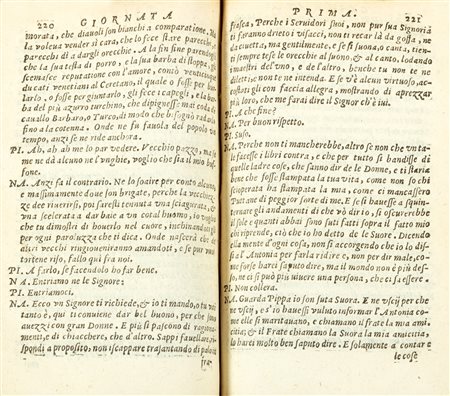 220
GIORNATA
morata, che diauoli son bianchi a comparatione. Ma
la voleua vender si cara, che lo fece stare parecchi, e
parecchi dì a dargli orecchie. A la fin fine parendogli
che la sua testa di porro, e la sua barba di stoppa, gli
scemasse reputatione con l'amore, contò venticinque
ducati venetiani al Ceretano, il quale o fosse per bur
larlo, o fosse per giuntarlo, gli fece i capegli, e la bar
ba del più azurro turchino, che dipignesse mai coda di
cauallo Barbaro, o Turco, di modo che bisognò raderlo
fino a la cotenna. Onde ne fu fauola del popolo vn
tempo, anzi se ne ride anchora.
PI. Ah, ah, ah me lo par vedere. Vecchio pazzo, ma se
me ne dà alcuno ne l'vnghie, voglio che sia il mio buf
fone.
NA. Anzi fa il contrario. Ne lo soaire per conto alcuno,
e massimamente doue son brigate, perche la vecchiez-
ze dee riuerirsi, poi saresti tenuta vna sciaguratta, &
vna scelerata a dar baie a vn cotal huomo, io voglio
che tu dimostri di hauerlo nel cuore, inchinandoti quasi
per ogni paroluzza che ti dica. Onde nascerà che de
gli altri vecchi ringioueniranno amandoti, e se pur vuoi
tortene riso, fallo quì fra noi.
PI. A farlo, se facendolo ho far bene.
NA. Entriamo ne le Signore;
PI. Entriamoci.
NA. Ecco vn Signore ti richiede, & io ti mando, o tu vai
doue è questi, quì ti conuiene dar bel buono, perche son
auezzi con gran Donne. E più si pascono di ragiona-
menti, e di chiacchere, che d'altro. Sappi fauellare, ri-
spondi a proposito, non iscappare trasaltando di palo in
fra
PRIMA.
221
frasca, Perche i Seruidori suoi, non pur sua Signoria
ti faranno drieto i visacci, non ti recar là da gossa, ne
da ciuetta, ma gentilmente, e se si suona, o canta, tien-
ti sempre tese le orecchie al suono, & al canto, lodando
i mastri de l'vno, e de l'altro, benche tu non te ne
diletti; o non te ne intenda. E se v'è alcun virtuoso, ac-
costatigli con faccia allegra, mostrando di apprezzar
più loro, che me farai dire il Signor ch'è iui.
PI. A che fine?
NA. Per buon rispetto.
PI. Suso.
NA. Perche non ti mancherebbe, altro se non che vn ta-
le facesse i libri contra, e che per tutto si bandisse di
quelle ladre cose, che sanno dir de le Donne, e ti staria
bene che fosse stampata la tua vita, come non so che
scioperata ha stampata la mia, come ci mancassero
Puttane di peggior sorte di me. E se si hauesse a squin-
ternare gli andamenti di che vò dir io, si oscurerebbe
il sole e quanti abbai sono suti fatti sopra il fatto mio
chi riprende, ciò che io ho detto de le Suore. Dicendo
ella mente d'ogni cosa, non si accorgendo che io lo dis-
si a l'Antonia per farla ridere, e non per dir male, co-
me forse harei saputo dire, ma il mondo non è più des-
so, ne ci si può più viuere vna persona, che ci sa essere.
PI. Non collera.
NA. Guarda Pippa io son suta Suora. E ne vscij per che
ne vscij, e s'io hauessi voluto informar l'Antonia co-
me elle si maritauano, e chiamano il frate la mia ami-
citia; & il Frate chiamano la Suora la mia amicitia,
lo harei molto ben saputo dire. E solamente a contar e
le cose